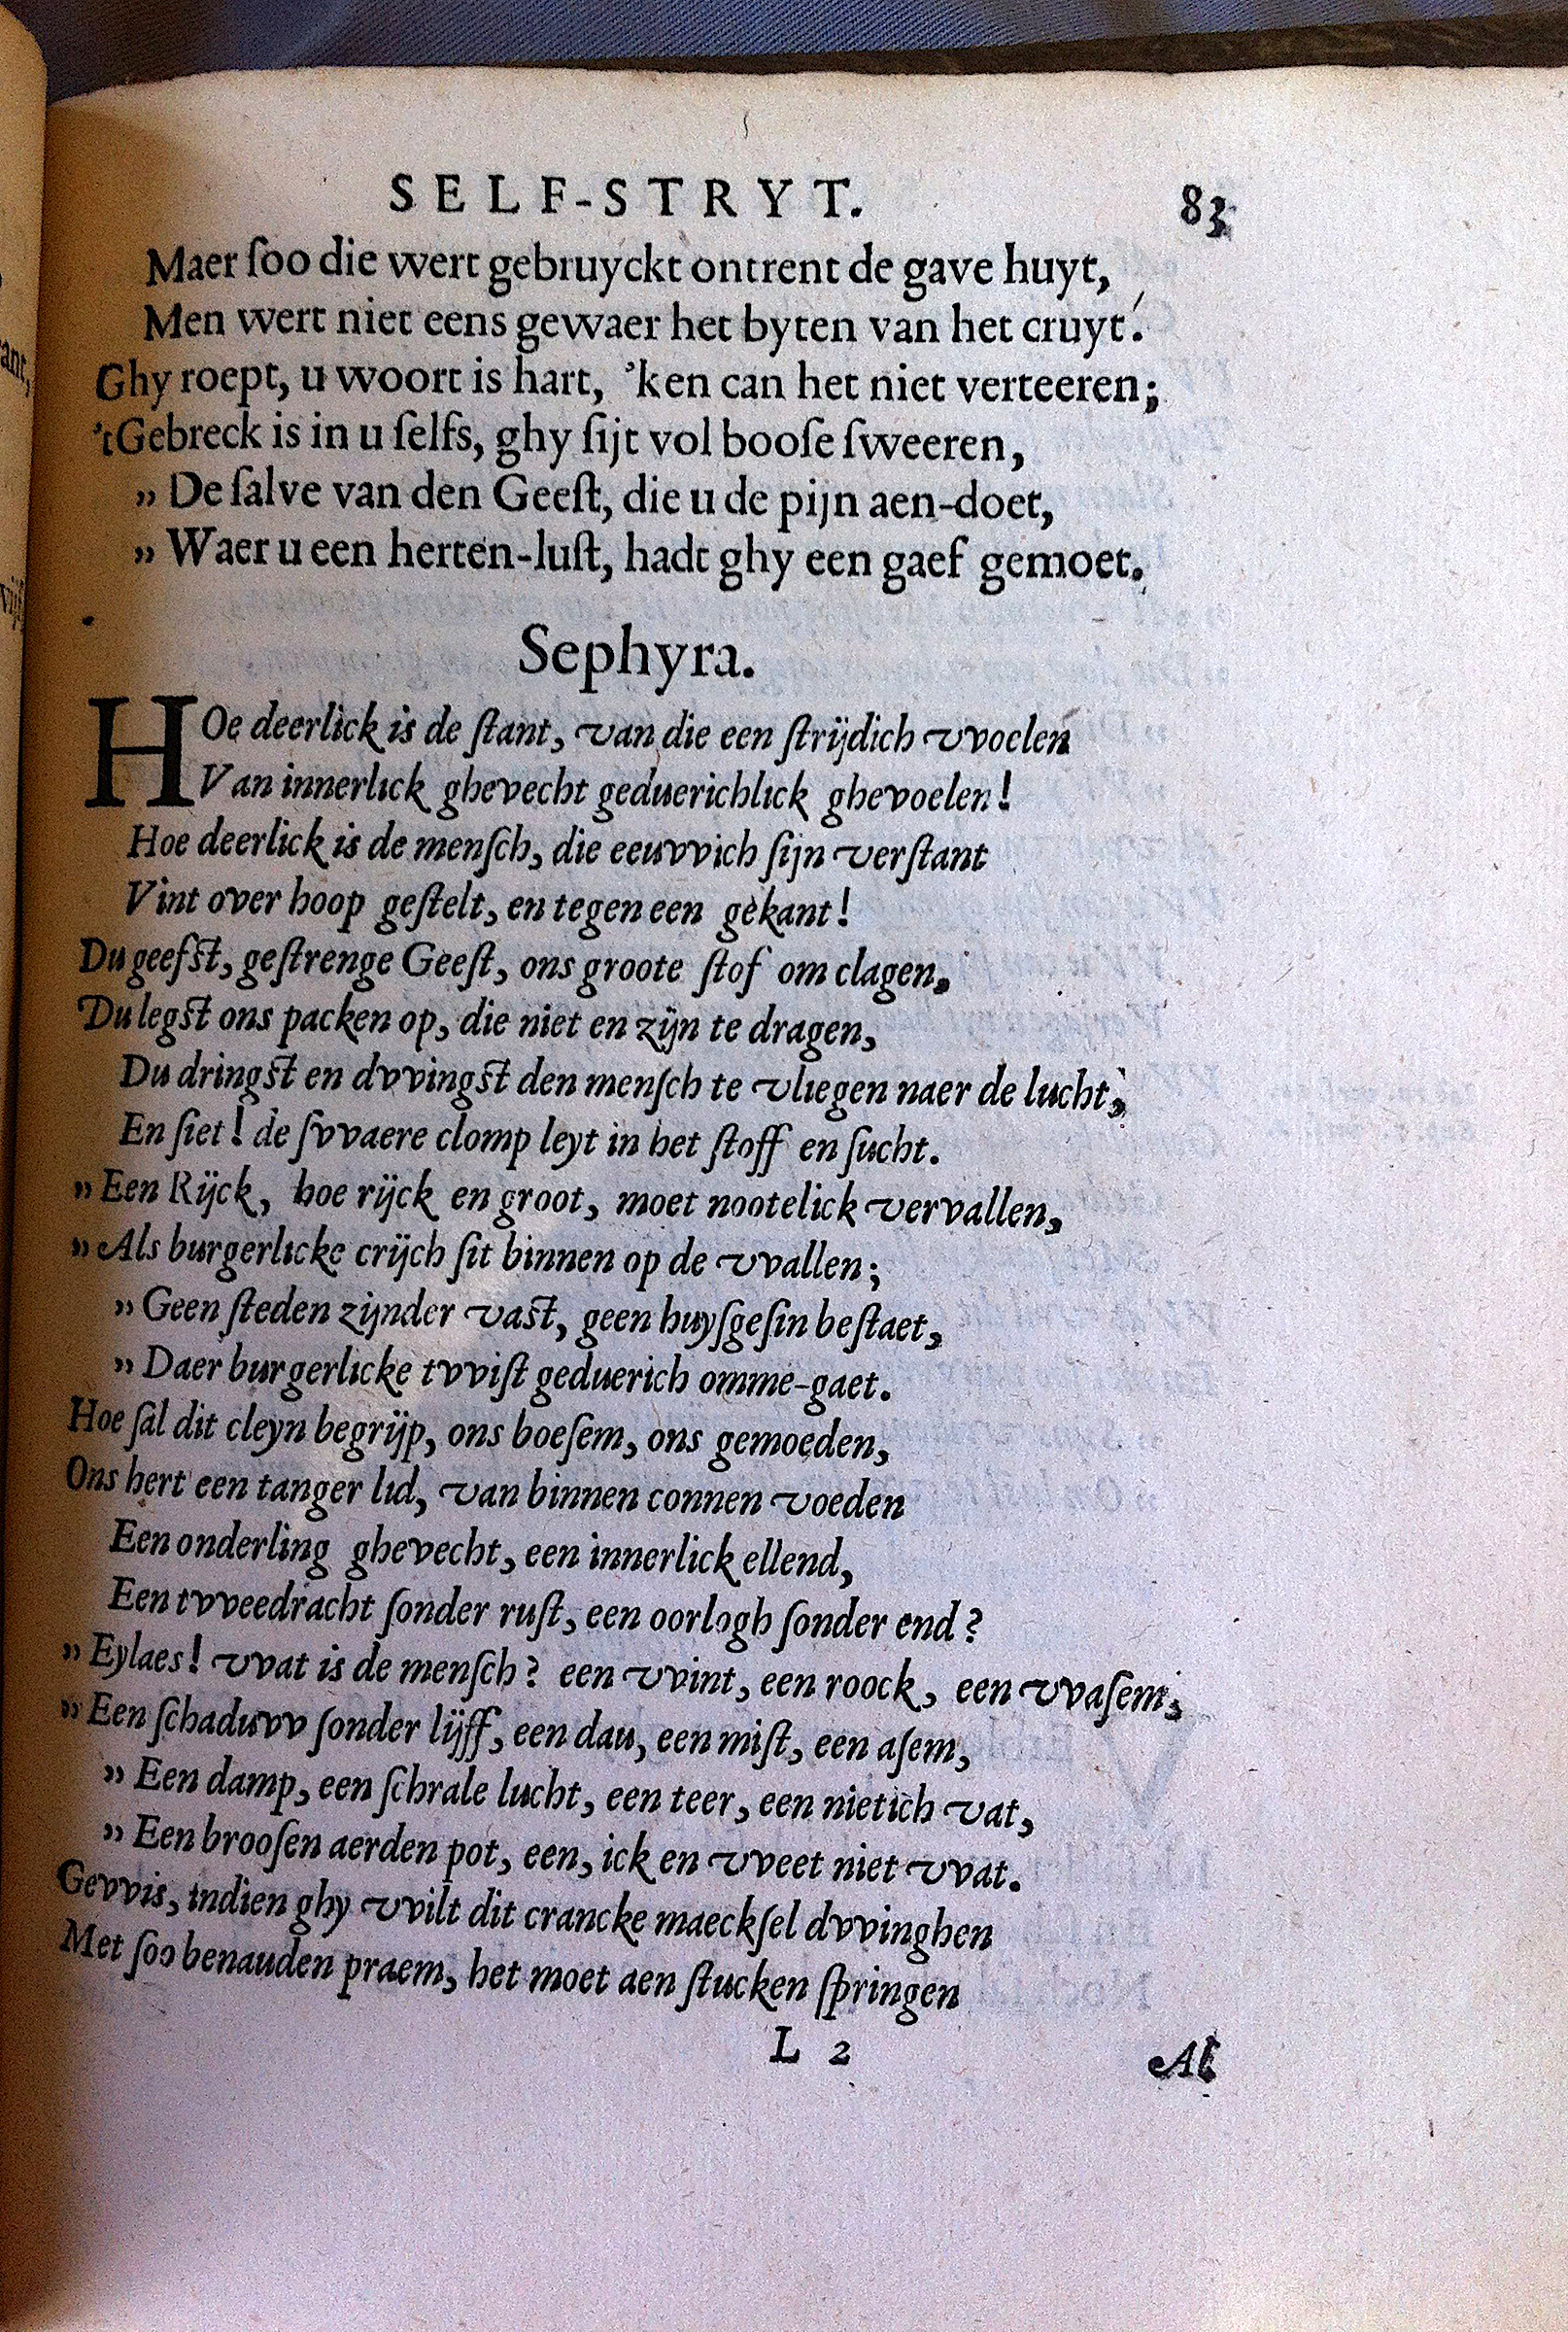 SELF-STRYT. 83
Maer ſoo die wert gebruyckt ontrent de gave huyt,
Men wert niet eens gewaer het byten van het cruyt.
Ghy roept, u woort is hart, 'ken can het niet verteeren;
't Gebreck is in u ſelfs, ghy ſijt vol booſe ſweeren,
„ De ſalve van den Geeſt, die u de pijn aen-doet,
„ Waer u een herten-luſt, hadt ghy een gaef gemoet.
Sephyra.
HOe deerlick is de ſtant, van die een ſtrijdich vvoelen
Van innerlick ghevecht geduerichlick ghevoelen!
Hoe deerlick is de menſch, die eeuvvich ſijn verſtant
Vint over hoop geſtelt, en tegen een gekant!
Du geefſt, geſtrenge Geeſt, ons groote ſtof om clagen,
Du legſt ons packen op, die niet en zijn te dragen,
Du dringſt en dvvingſt den menſch te vliegen naer de lucht,
En ſiet! de ſvvaere clomp leyt in het ſtoff en ſucht.
„ Een Rijck, hoe rijck en groot, moet nootelick vervallen,
„ Als burgerlicke crijch ſit binnen op de vvallen;
„ Geen ſteden zijnder vaſt, geen huyſgeſin beſtaet,
„ Daer burgerlicke tvviſt geduerich omme-gaet.
Hoe ſal dit cleyn begrijp, ons boeſem, ons gemoeden,
Ons hert een tanger lid, van binnen connen voeden
Een onderling ghevecht, een innerlick ellend,
Een tvveedracht ſonder ruſt, een oorlogh ſonder end?
„ Eylaes! vvat is de menſch? een vvint, een roock, een vvaſem,
„ Een ſchaduvv ſonder lijff, een dau, een miſt, een aſem,
„ Een damp, een ſchrale lucht, een teer, een nietich vat,
„ Een brooſen aerden pot, een, ick en vveet niet vvat.
Gevvis, indien ghy vvilt dit crancke maeckſel dvvinghen
Met ſoo benauden praem, het moet aen ſtucken ſpringen
L 2